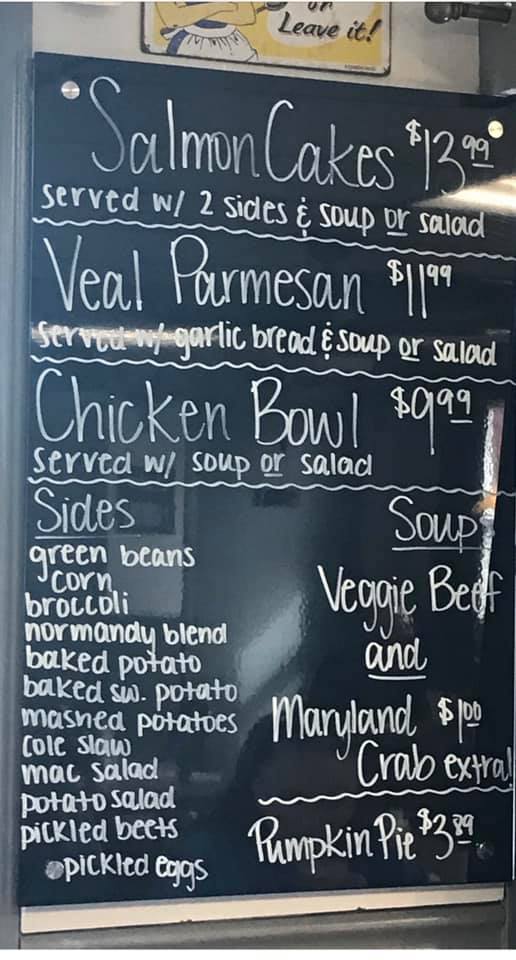 or
Leave it!
Salmon Cakes $13.99
served w/ 2 sides & soup or salad
Veal Parmesan $11.99
served w/ garlic bread & soup or salad
Chicken Bowl $9.99
served w/ soup or salad
Sides
green beans
corn
broccoli
normandy blend
baked potato
baked sw. potato
mashed potatoes
cole slaw
mac salad
potato salad
pickled beets
pickled eggs
Soup
Veggie Beef
and
Maryland $1.00
Crab extra!
Pumpkin Pie $3.89